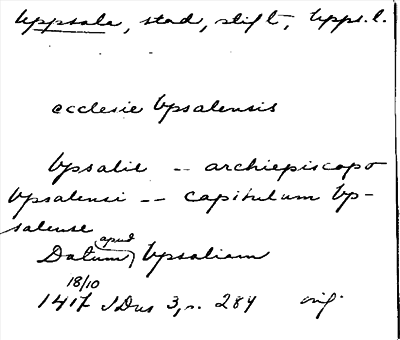 Uppsala, stad, stift, Upps. l.
ecclesie Vpsalensis
Vpsalie -- archiepiscopo
Vpsalensi -- capitulum Vp-
salense
Datum apud Vpsaliam
18/10
1417 SDns 3, s. 284 orig.